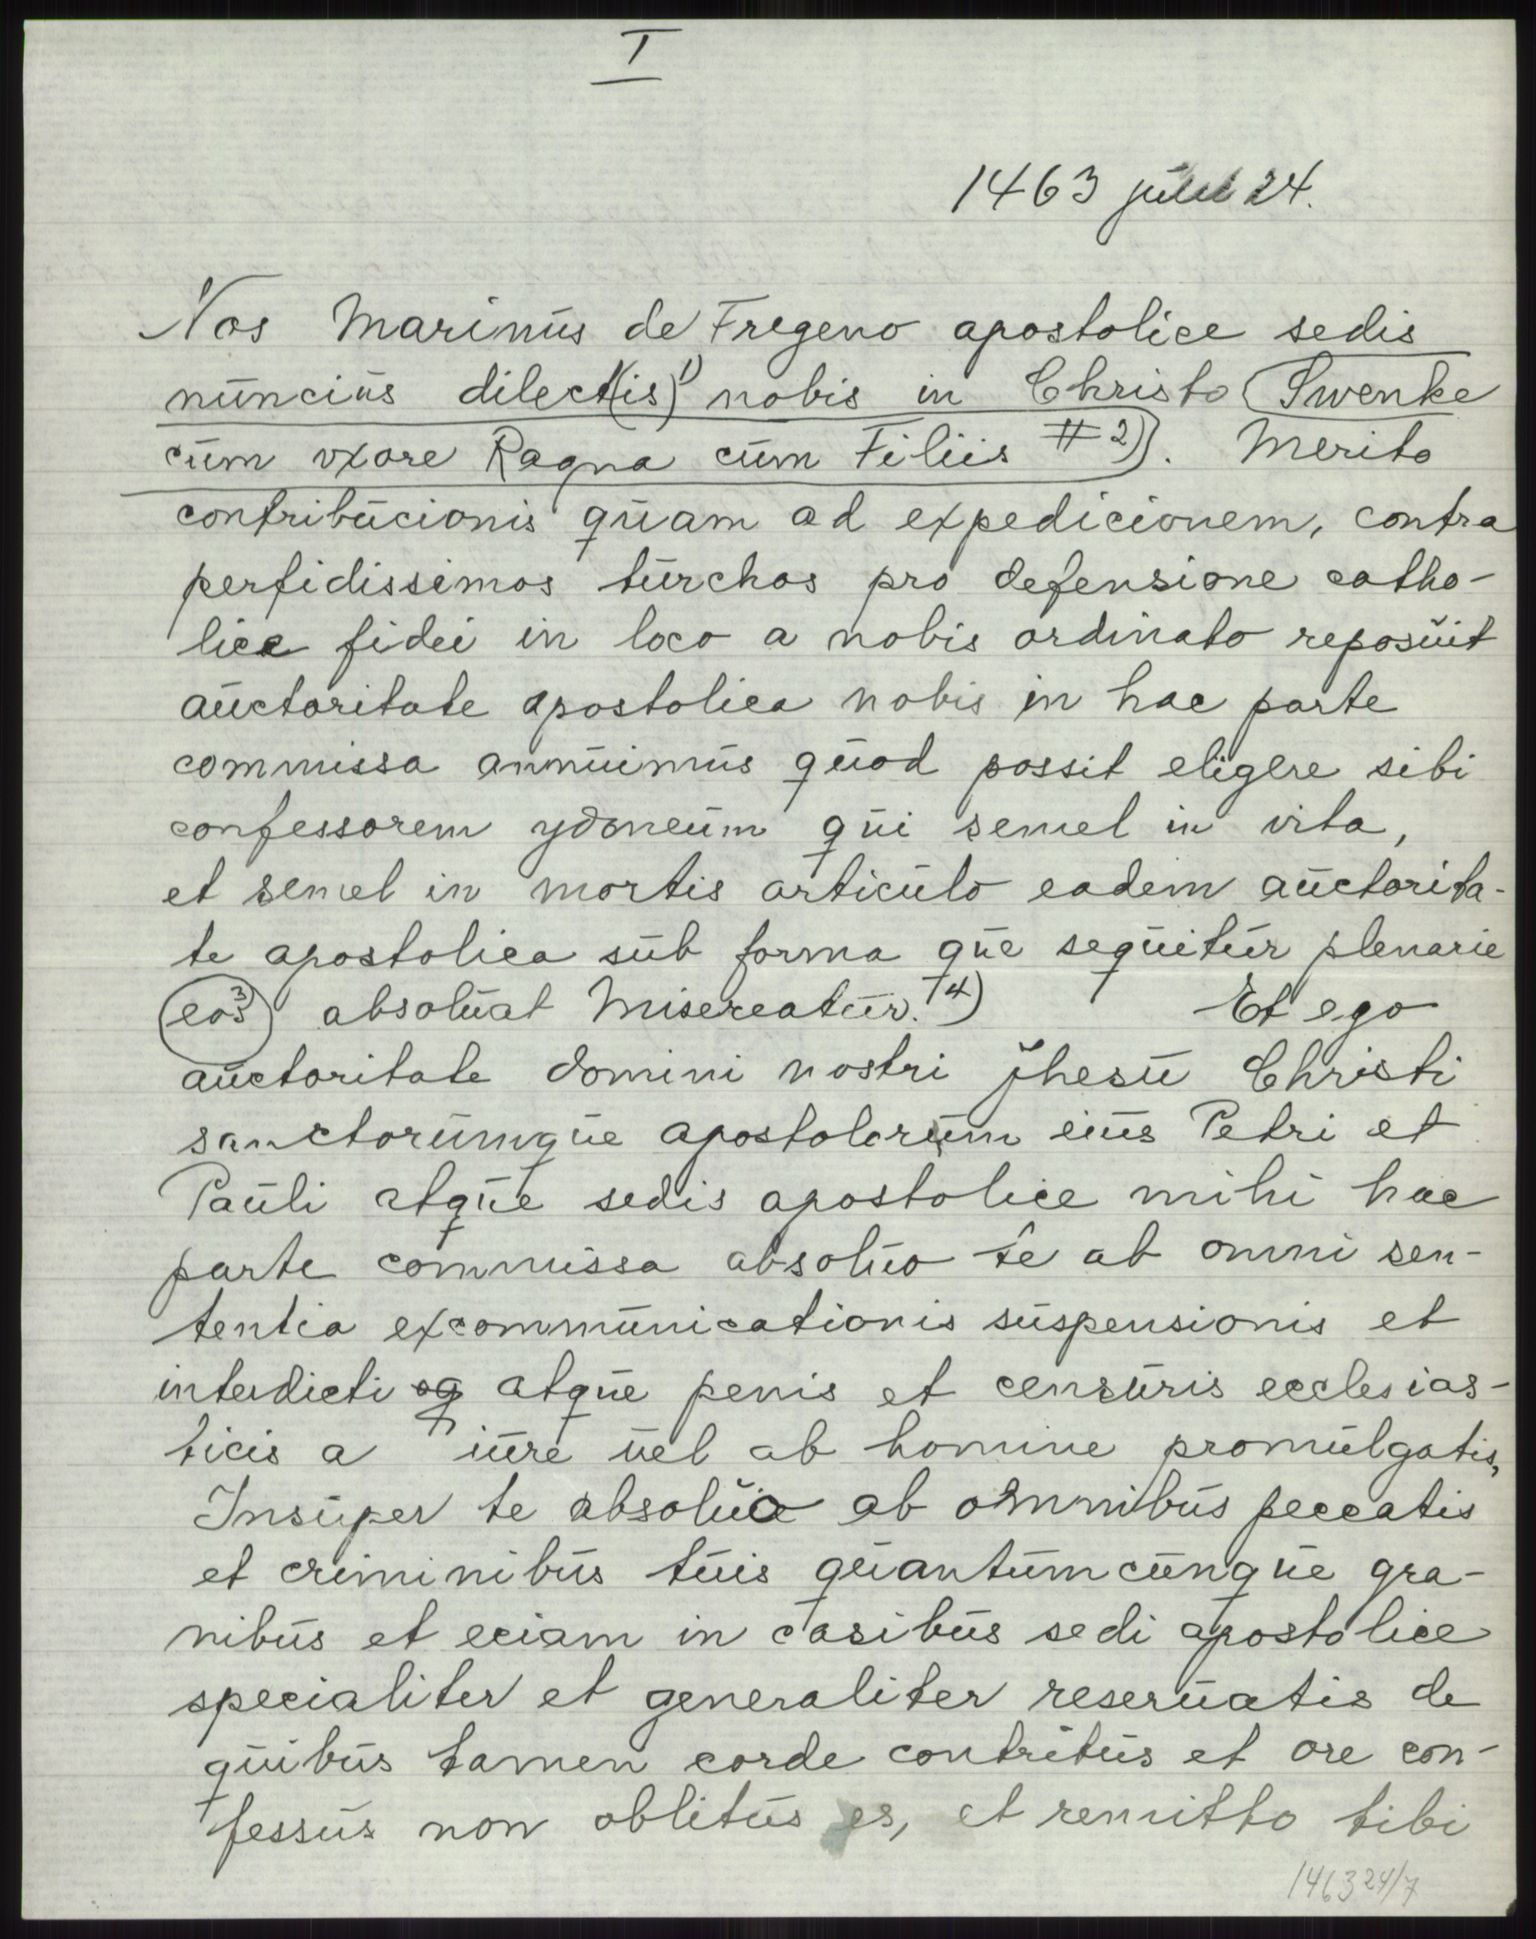 I
1463 juli 24.
Nos Marinus de Fregeno apostolice sedis
nuncius dilect(is)1) nobis in Christo (Swenke
cum vxore Ragna cum Filiis # 2)). Merito
contribucionis quam ad expedicionem, contra
perfidissimos turchos pro defensione catho-
lice fidei in loco a nobis ordinato reposuit
auctoritate apostolica nobis in hac parte
commissa annuimus quod possit eligere sibi
confessorem ydoneum qui semel in vita,
et semel in mortis articulo eadem auctorita-
te apostolica sub forma que sequitur plenarie
eos3) absoluat Misereatur. 4) Et ego
auctoritate domini nostri Jhesu Christi
sanctorumque apostolorum eius Petri et
Pauli atque sedis apostolice mihi hac
parte commissa absoluo te ab omni sen-
tentia excommunicationis suspensionis et
interdicti atque penis et censuris ecclesias-
ticis a iure uel ab homine promulgatis,
Insuper te absoluo ab omnibus peccatis
et criminibus tuis quantumcunque gra-
uibus et eciam in casibus sedi apostolice
specialiter et generaliter reseruatis de
quibus tamen corde contritus et ore con-
fessus non oblitus es, et remitto tibi
1463 24/7